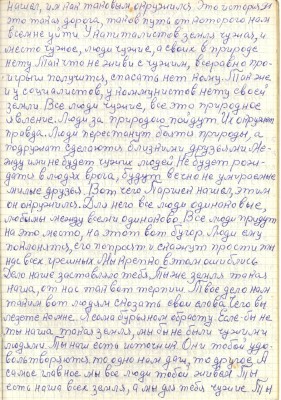 нашел, им он таковым окружился. Это история
это такая дорога, такой путь от которого нам
всем не уйти У капиталистов земля чужая, и
место чужое, люди чужие, а своих в природе
нету Так что не живи с чужим, все равно про-
игрыш получится, спасать нет кому. Так же
и у социалистов, у коммунистов нету своей
земли. Все люди чужие, все это природное
явление. Люди за природою пойдут Их окружит
правда. Люди перестанут боятся природы, а
подружат сделаются близкими друзьями Ме-
жду ими не будет чужих людей. Не будет рожи-
датся в людях врага, будут вечно не умираемые
милые друзья. Вот чего Паршек нашел, этим
он окружился. Для него все люди одинаковые,
любимы между всеми одинаково. Все люди придут
на это место, на этот вот бугор. Люди ему
поклонятся, его попросят и скажут прости ты
нас всех грешных Мы крепко в этом ошиблись
Дело наше заставляло тебя. Ты же земля такая
наша, от нас так вот терпиш. Твое дело нам
таким вот людям сказать свои слова. Чего вы
лезете ко мне. Я сама бурьяном обрасту. Если бы не
ты наша такая земля, мы бы не были чужими
людями. Ты наш есть источник Они тобой удо-
вольтворяются, то одно нам даш, то другое. А
самое главное мы все люди тобой живем. Ты
есть наша всех земля, а мы для тебя чужие. Ты